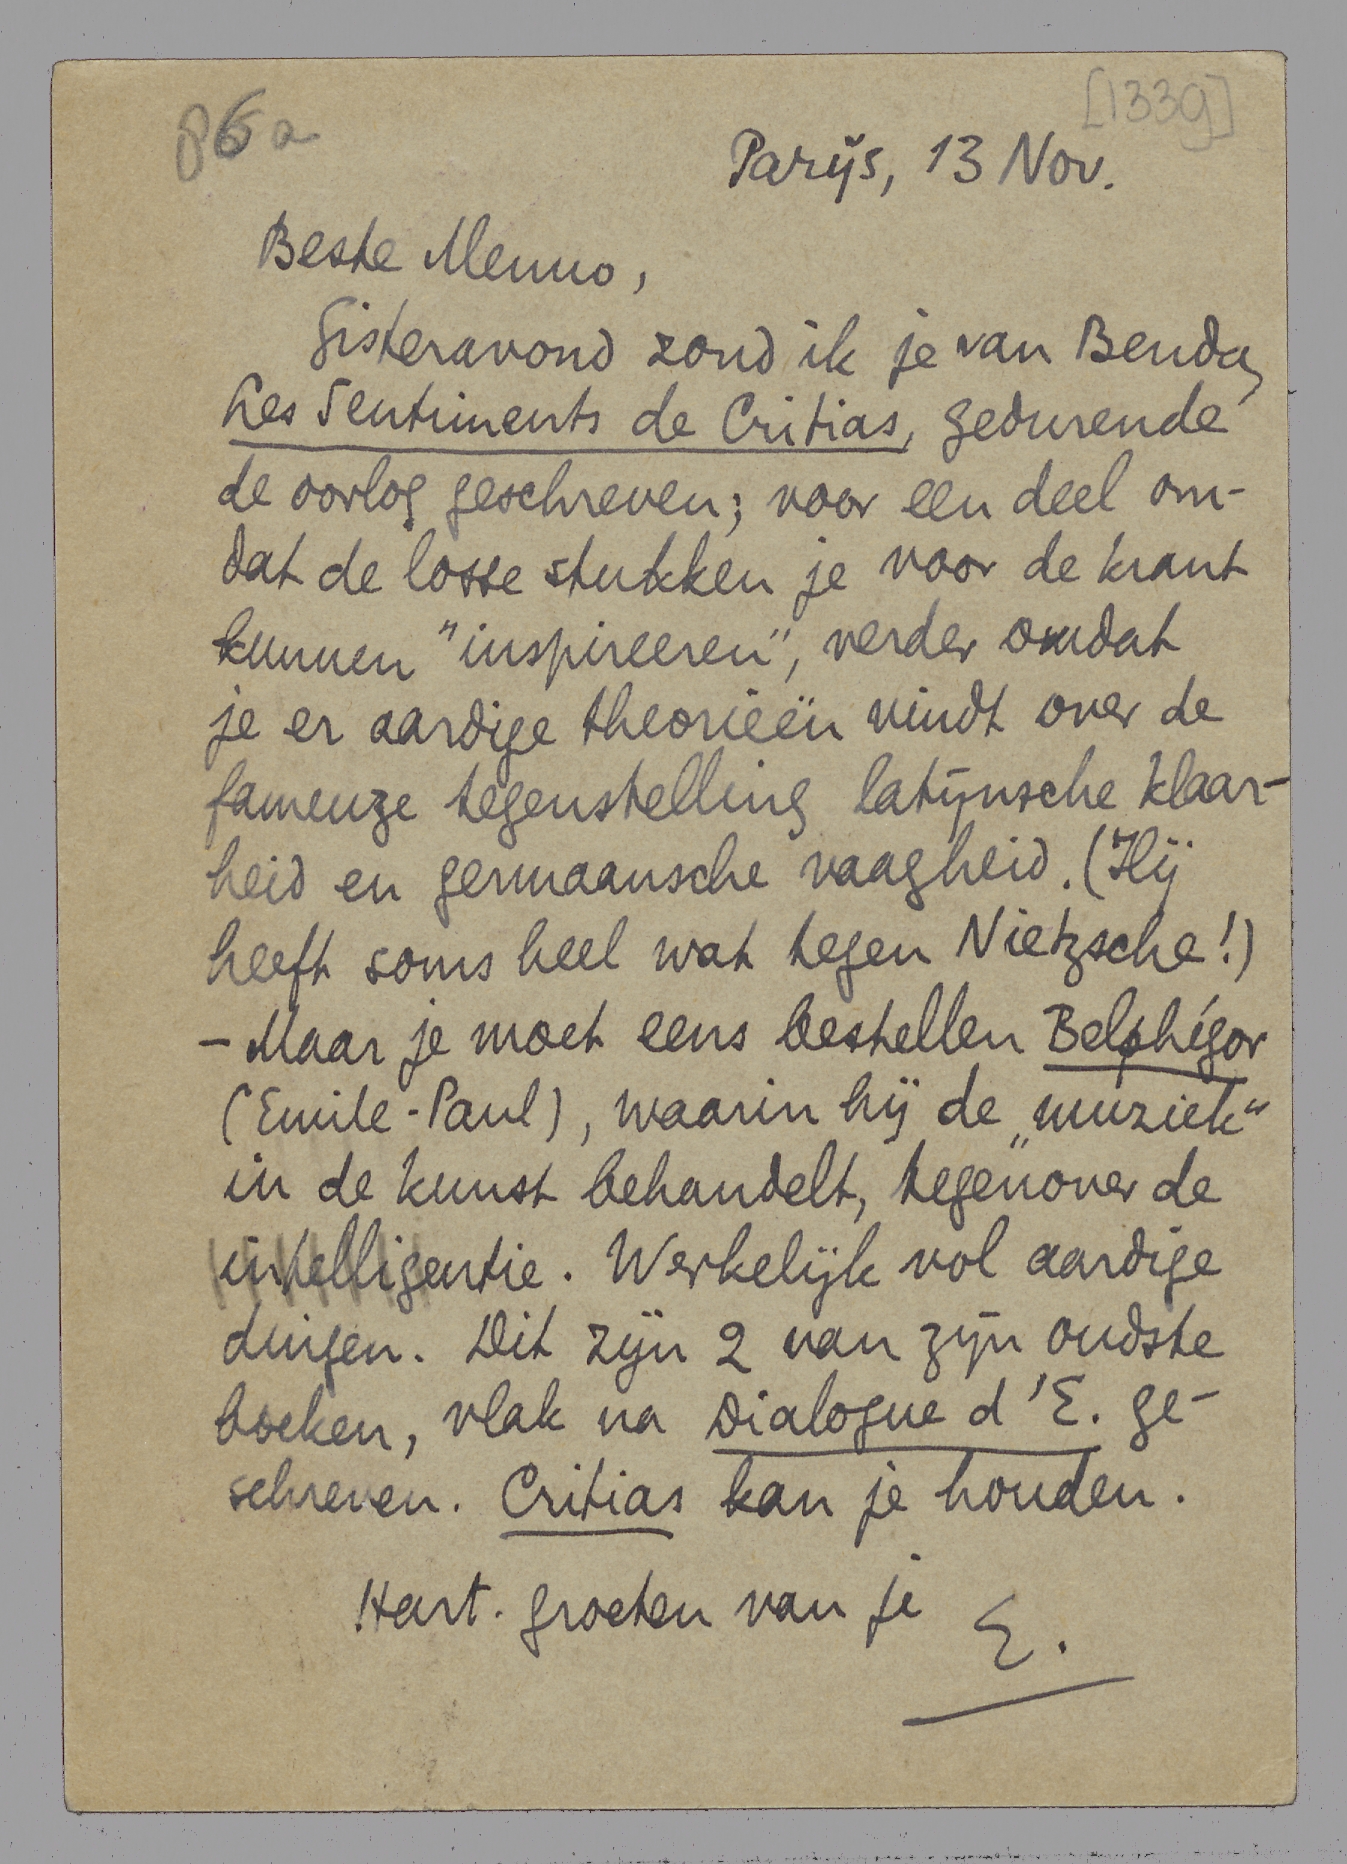 86a
[1339]
Parijs, 13 Nov.
Beste Menno,
Gisteravond zond ik je van Benda,
Les Sentiments de Critias, gedurende
de oorlog geschreven; voor een deel om-
dat de losse stukken je voor de krant
kunnen "inspireeren", verder omdat
je er aardige theorieën vindt over de
fameuze tegenstelling latijnsche klaar-
heid en germaansche vaagheid. (Hij
heeft soms heel wat tegen Nietzsche!)
- Maar je moet eens bestellen Belphégor
(Emile-Paul), waarin hij de „muziek"
in de kunst behandelt, tegenover de
intelligentie. Werkelijk vol aardige
dingen. Dit zijn 2 van zijn oudste
boeken, vlak na Dialogue d'E. ge-
schreven. Critias kan je houden.
Hart. groeten van je
E.